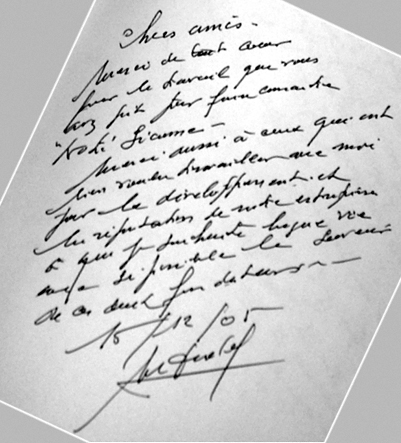 Chers amis -
Merci de tout cœur
pour le travail que vous
avez fait pour faire connaître
"Noté Sienne" -
Merci aussi à ceux qui ont
bien voulu travailler avec moi
pour le développement et
la réputation de notre entreprise
à qui je souhaite longue vie
avec si possible le souvenir
de ses deux fondateurs -
15/12/05